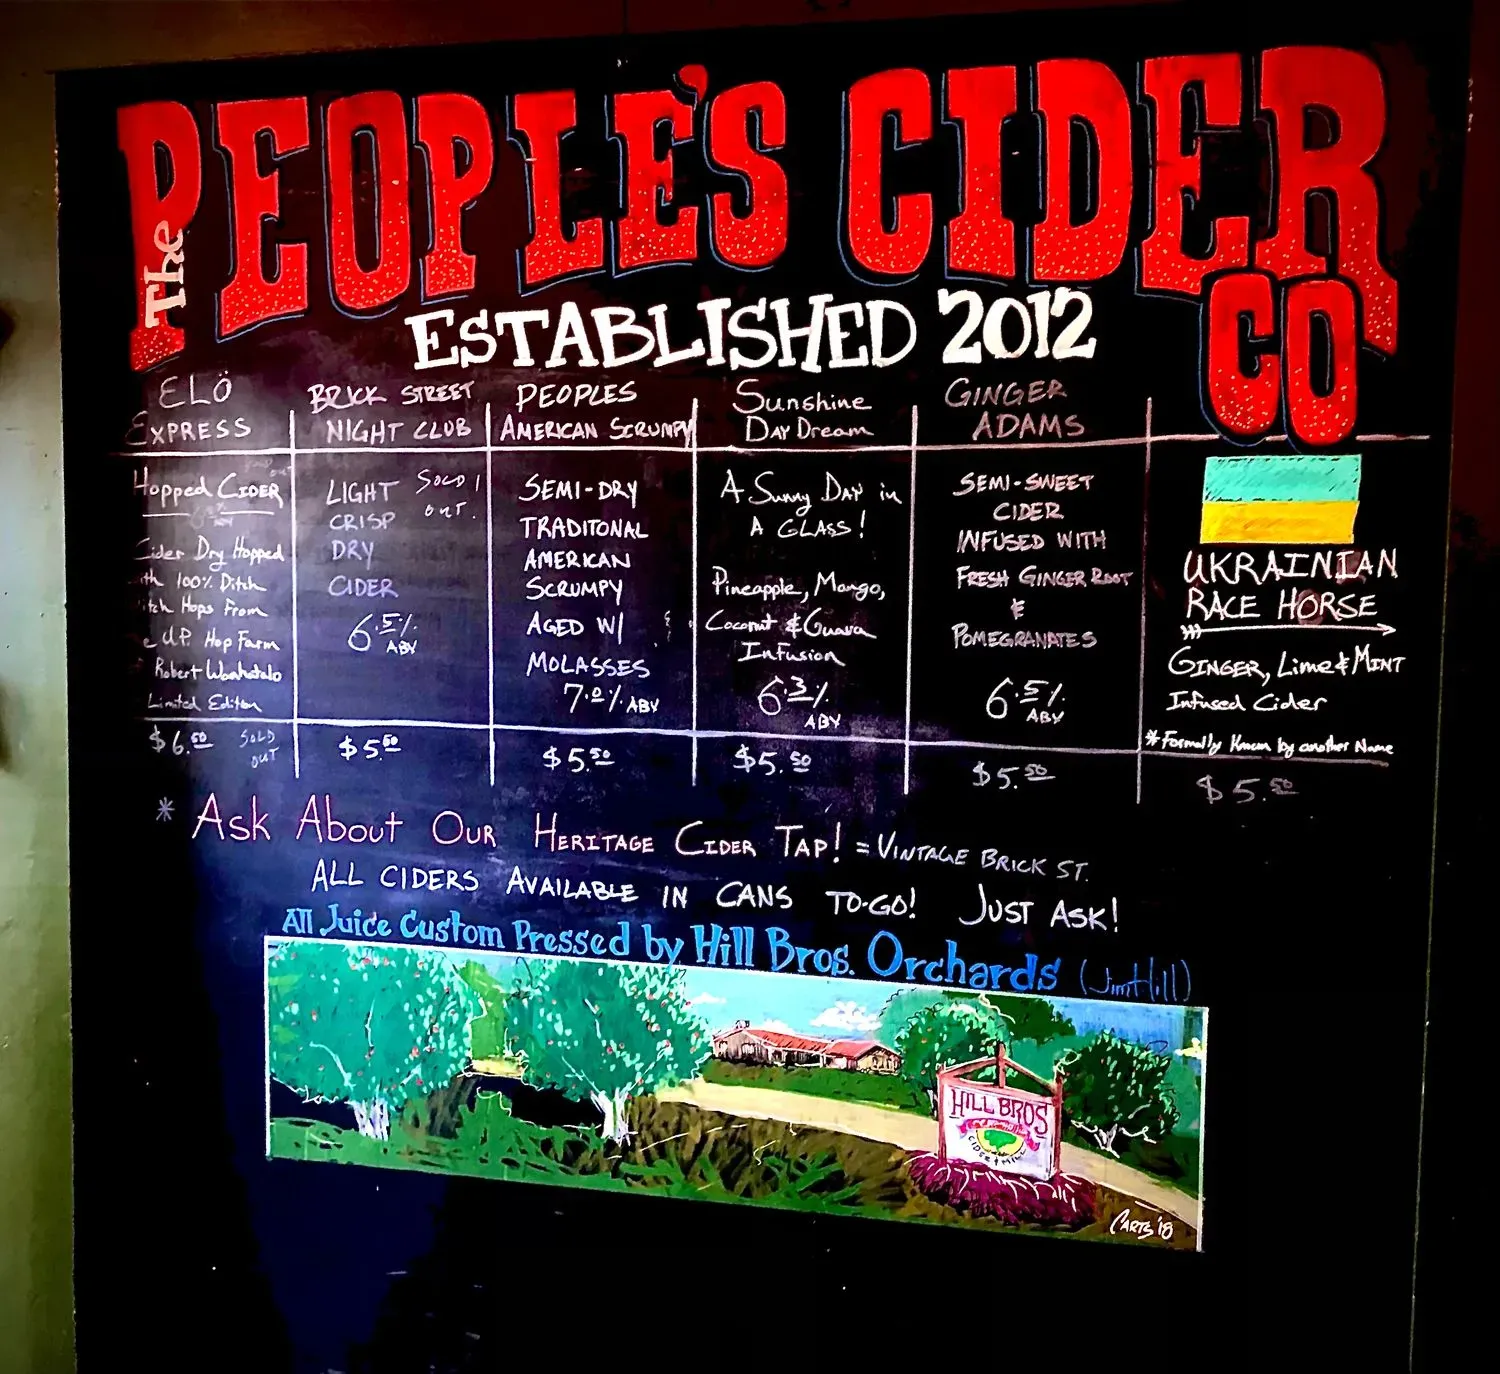 The PEOPLE'S CIDER CO
ESTABLISHED 2012
ELÖ
EXPRESS
Hopped CIDER
ABV
Cider Dry Hopped
100% Ditch
Hops From
U.P. Hop Farm
Robert
Limited Edition
$6.50 SOLD
OUT
BRICK STREET
NIGHT CLUB
LIGHT SOLD
OUT.
CRISP
DRY
CIDER
6.5%
ABV
$5.50
PEOPLES
AMERICAN SCRUMPY
SEMI-DRY
TRADITONAL
AMERICAN
SCRUMPY
AGED W/
MOLASSES
7.0% ABV
$5.50
Sunshine
DAY Dream
A Sunny DAY in
A GLASS!
Pineapple, Mango,
Coconut & Guava
Infusion
6.3%
ABV
$5.50
GINGER
ADAMS
SEMI-SWEET
CIDER
INFUSED WITH
FRESH GINGER ROOT
&
POMEGRANATES
6.5%
ABV
$5.50
UKRAINIAN
RACE HORSE
GINGER, Lime & MINT
Infused Cider
*Formally Known by another Name
$5.50
* ASK ABOUT OUR HERITAGE CIDER TAP! = VINTAGE BRICK ST.
ALL CIDERS AVAILABLE IN CANS TO-GO! JUST ASK!
All Juice Custom Pressed by Hill Bros. Orchards (Jim Hill)
HILL BROS
CARTS '18